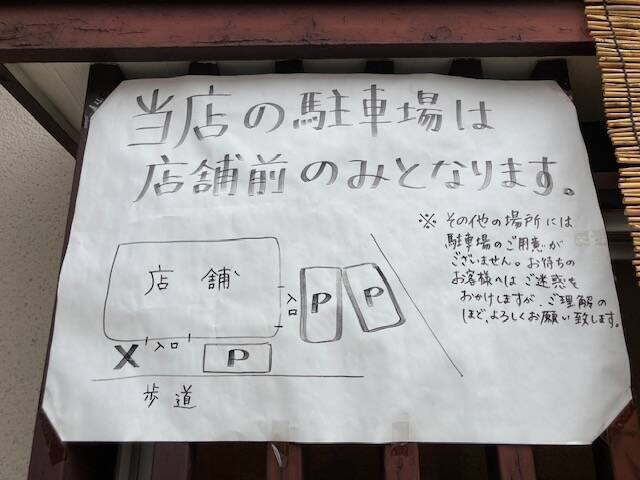 当店の駐車場は
店舗前のみとなります。
※ その他の場所には
駐車場のご用意が
ございません。お待ちの
お客様へはご迷惑を
おかけしますが、ご理解の
ほど、よろしくお願い致します。
店舗
入口
P
P
X
入口
P
歩道